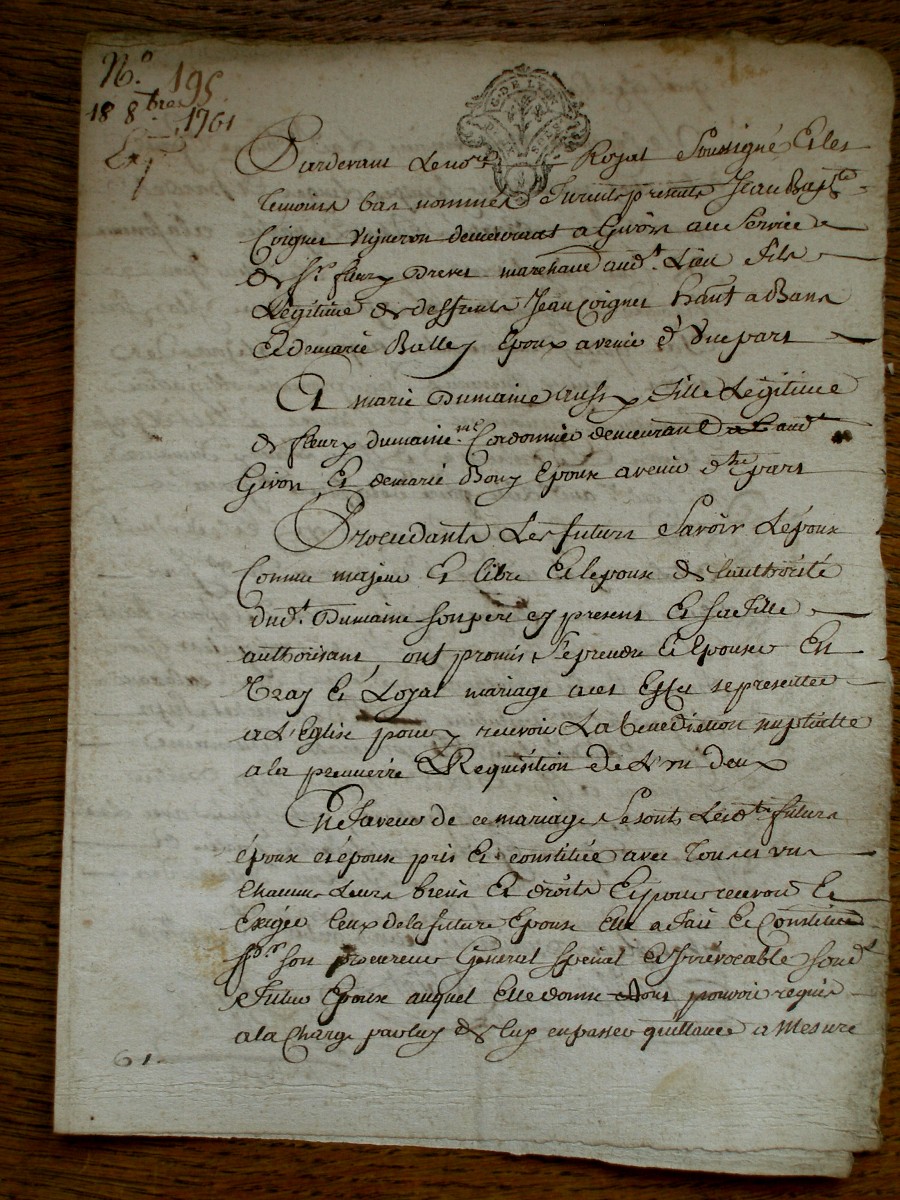 N.º 195
18 8bre 1761
G. DE LYON
Pardevant Le no.re Royal Soussigné Et les
temoins bas nommés furent presents Jean Bap.te
Coignet Vigneron demeurant a Givors au Service
de S.r fleury Drevet marchand aud.t Lieu fils
Légitime de deffunts Jean Coignet hant a Bans
Et de marie Balley Epoux avenir d'Une part
Et marie Dumaine aussy fille Légitime
de fleury dumaine m.e Cordonnier demeurant aud.t
Givors Et de marie Bouy Epouse avenir d'.tre part
Procedants Les futurs Savoir Lépoux
Comme majeur Et libre Et lepouse de l'authorité
dud.t Dumaine son pere cy present Et sa fille
authorisant, ont promis se prendre Et Epouser En
Vray Et Loyal mariage a cet Effet se presenter
a L'Eglise pour y recevoir La benediction nuptialle
a la premierre Requisition de L'un deux
En faveur de ce mariage Se sont Lesd.ts futurs
époux et épouse pris Et constitués avec Tous et uns
Chacuns Leurs biens Et droits Et pour recevoir Et
Exiger Ceux de la future Epouse Elle a fait Et Constitué
son procureur General special Et Irrévocable sond.t
futur Epoux auquel Elle donne tout pouvoir requis
a la Charge par luy de luy en passer quittance a Mesure
61.